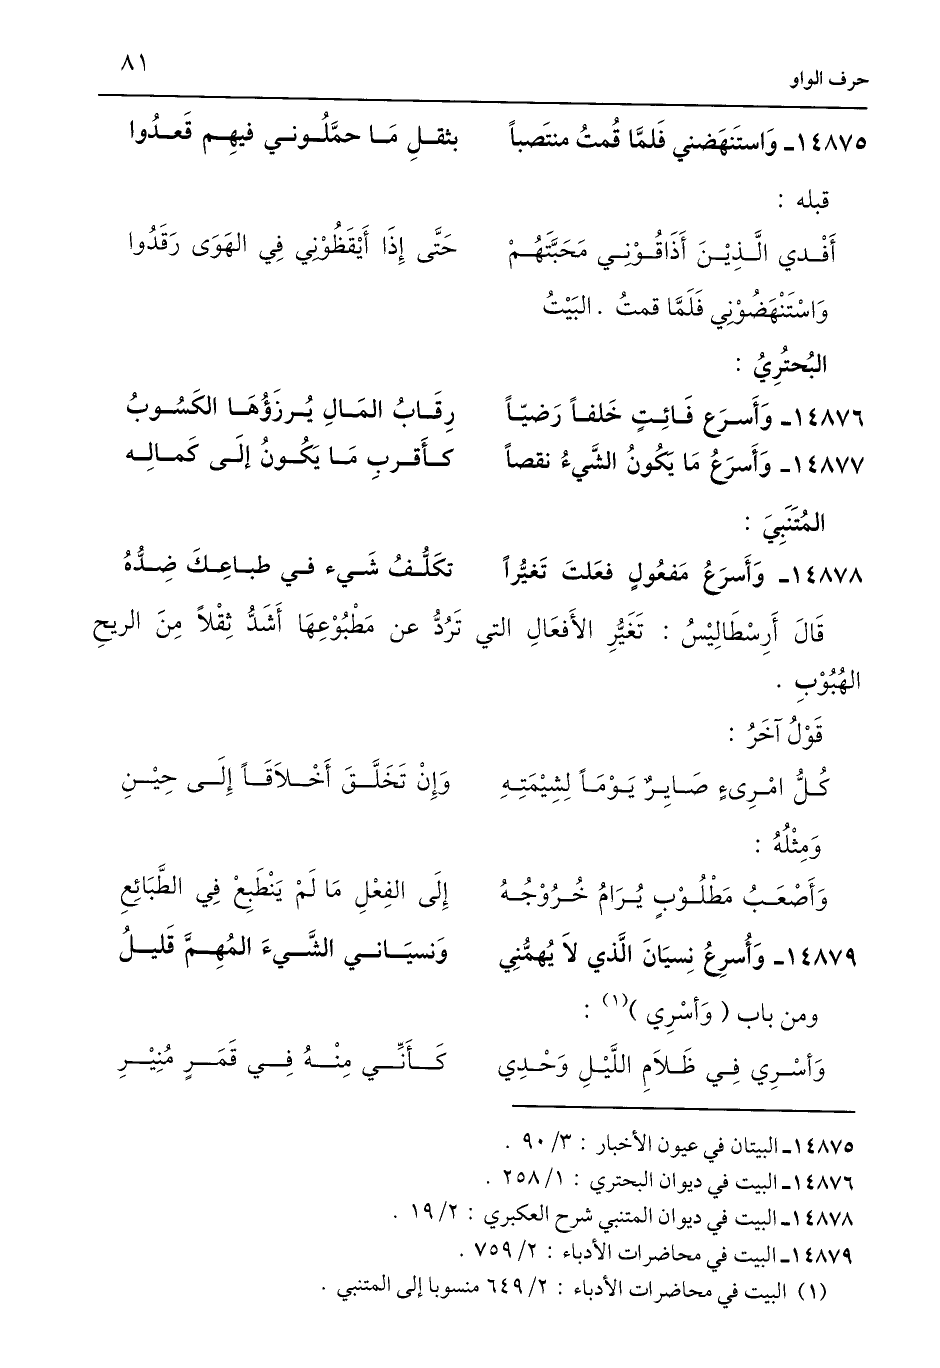 حرف الواو ٨١
١٤٨٧٥ـ وَاستَنهَضني فَلمَّا قُمتُ منتَصباً بثقـلِ مَـا حمَّلُـوني فيهِـم قَعـدُوا
قبله :
أَفْـدي الَّـذِيْـنَ أَذَاقُـوْنِـي مَحَبَّتَهُـمْ حَتَّى إِذَا أَيْقَظُوْنِي فِي الهَوَى رَقَدُوا
وَاسْتَنْهَضُوْنِي فَلَمَّا قمتُ . البَيْتُ
البُحتُرِيُ :
١٤٨٧٦ـ وَأَسـرَع فَـائِـتٍ خَلفـاً رَضيّـاً رِقَـابُ المَـالِ يُـرزَؤُهَـا الكَسُـوبُ
١٤٨٧٧ـ وَأَسرَعُ مَا يَكُونُ الشَّيءُ نقصاً كـأَقـربِ مَـا يَكُـونُ إلَـى كَمـالِـه
المُتَنَبِيَ :
١٤٨٧٨ـ وَأَسرَعُ مَفعُولٍ فعَلتَ تَغيُّراً تكَلُّـفُ شَـيء فـي طبـاعِـكَ ضِـدُّهُ
قَالَ أَرِسْطَالِيْسُ : تَغَيُّرِ الأَفعَالِ التي تَرُدُّ عن مَطْبُوْعِهَا أَشَدُّ ثِقْلاً مِنَ الريحِ
الهُبُوْبِ .
قَوْلُ آخَرُ :
كُـلُّ امْـرِىءٍ صَـايِـرٌ يَـوْمَـاً لِشِيْمَتِـهِ وَإِنْ تَخَلَّـقَ أَخْـلاَقَـاً إِلَـى حِيْـنِ
وَمِثْلُهُ :
وَأَصْعَـبُ مَطْلُـوْبٍ يُـرَامُ خُـرُوْجُـهُ إِلَى الفِعْلِ مَا لَمْ يَنْطَبِعْ فِي الطَّبَائِعِ
١٤٨٧٩ـ وَأُسرِعُ نِسيَانَ الَّذي لاَ يُهمُّنِي وَنسيَـانـي الشَّـيءَ المُهِـمَّ قَليـلُ
ومن باب ( وَأَسْرِي )(١) :
وَأسْـرِي فِـي ظَـلاَمِ اللَّيْـلِ وَحْـدِي كَـأَنِّـي مِنْـهُ فِـي قَمَـرٍ مُنِيْـرِ
١٤٨٧٥ـ البيتان في عيون الأخبار : ٣/ ٩٠ .
١٤٨٧٦ـ البيت في ديوان البحتري : ١/ ٢٥٨ .
١٤٨٧٨ـ البيت في ديوان المتنبي شرح العكبري : ٢/ ١٩ .
١٤٨٧٩ـ البيت في محاضرات الأدباء : ٢/ ٧٥٩ .
(١) البيت في محاضرات الأدباء : ٢/ ٦٤٩ منسوبا إلى المتنبي .